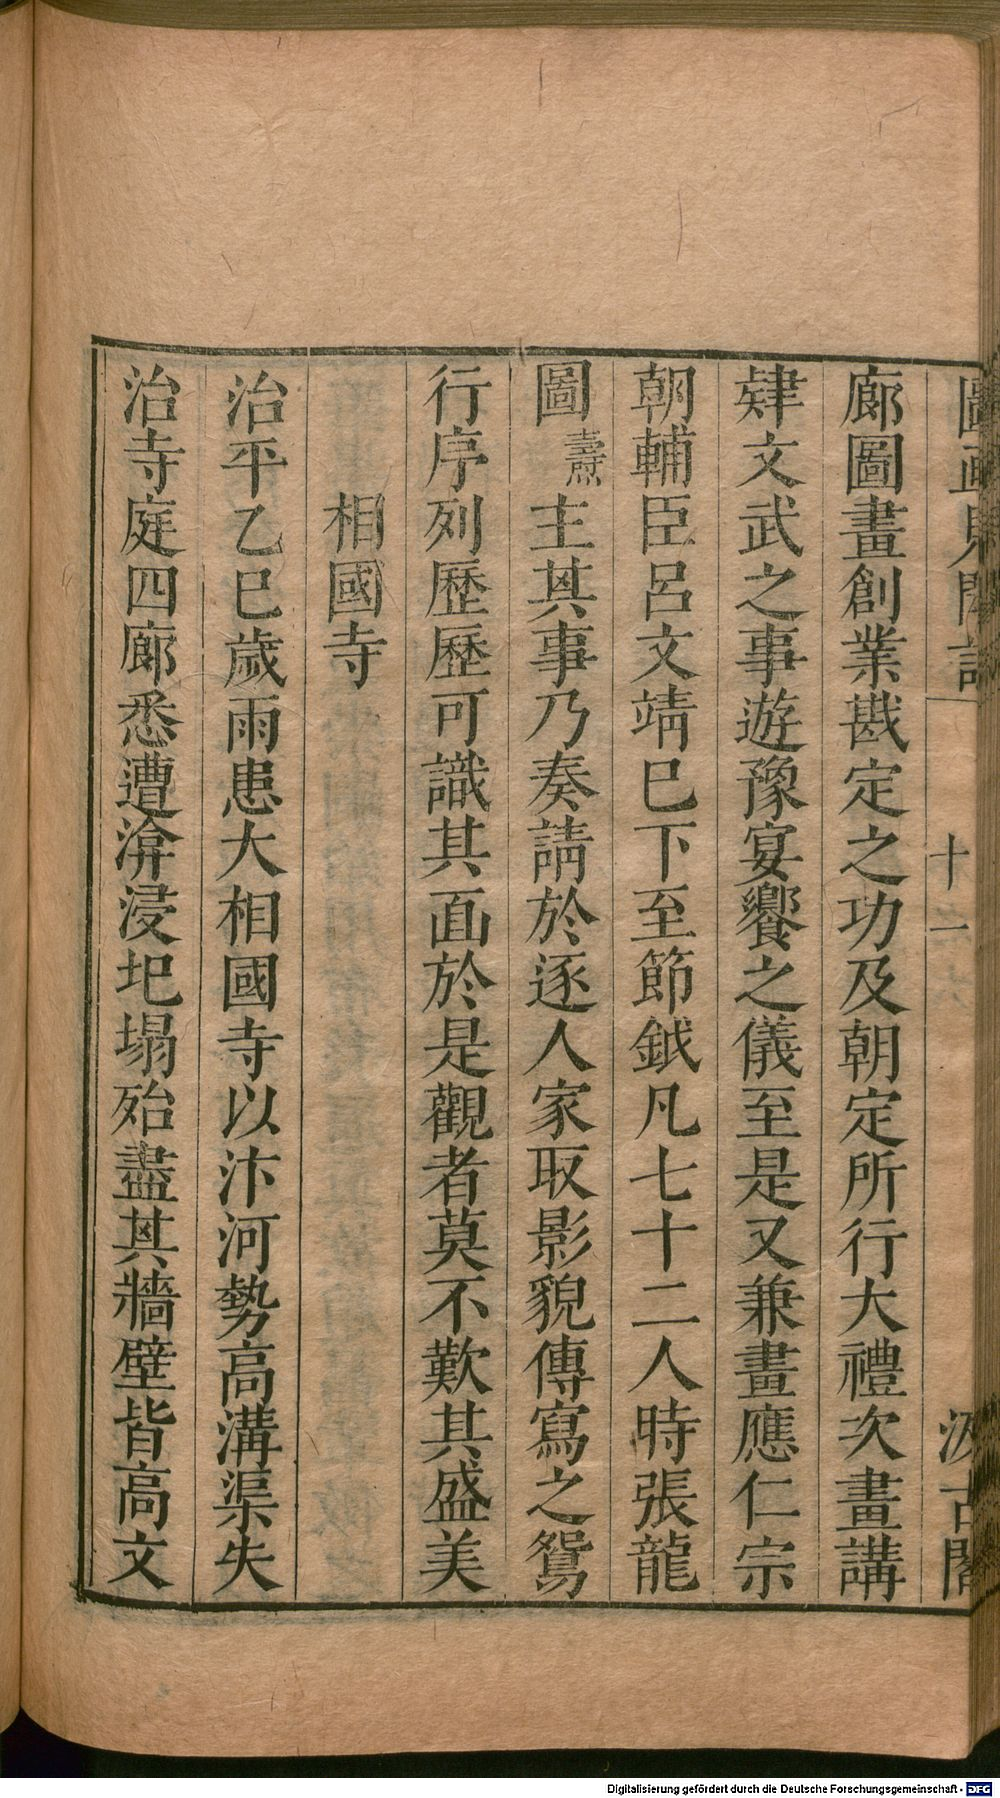 圖畫見聞誌
十之六
汲古閣
廊圖畫創業戡定之功及朝定所行大禮次畫講
肄文武之事遊豫宴饗之儀至是又兼畫應仁宗
朝輔臣呂文靖巳下至節鉞凡七十二人時張龍
圖燾主其事乃奏請於逐人家取影貌傳寫之鴛
行序列歷歷可識其面於是觀者莫不歎其盛美
相國寺
治平乙巳歲雨患大相國寺以汴河勢高溝渠失
治寺庭四廊悉遭渰浸圯塌殆盡其牆壁皆高文
Digitalisierung gefördert durch die Deutsche Forschungsgemeinschaft - DFG